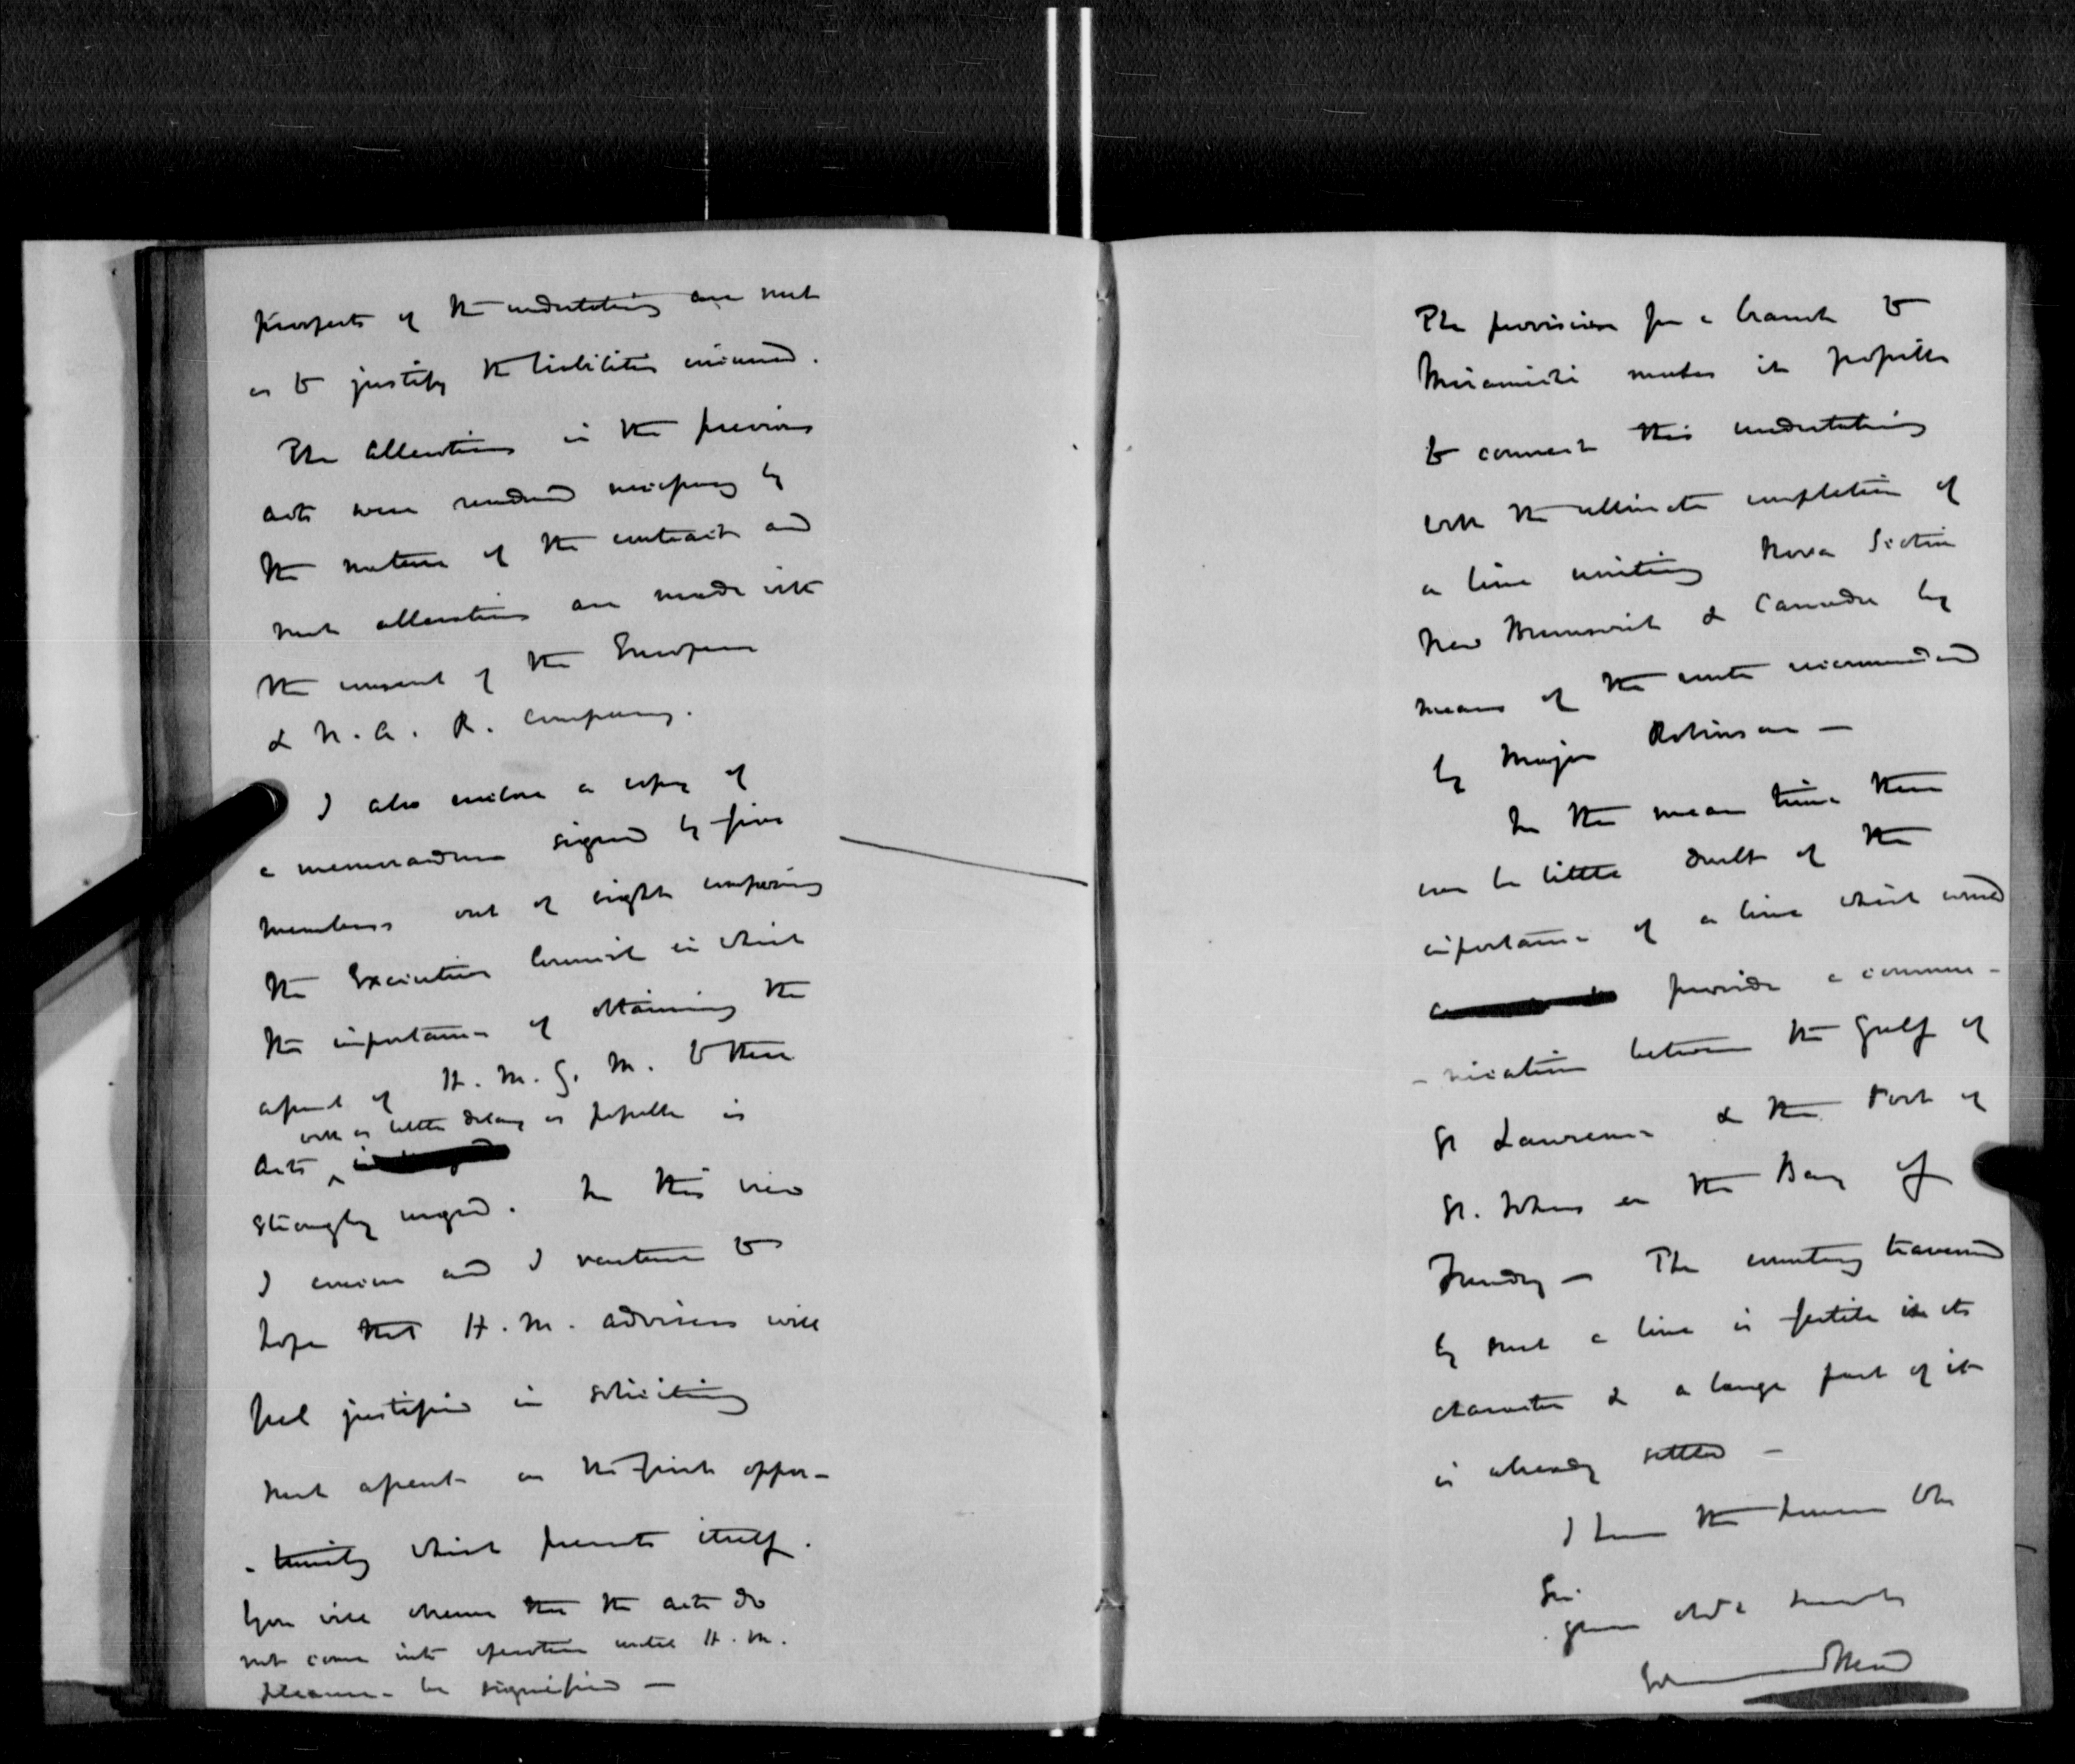 prospects of the undertaking are such
as to justify the liabilities incurred.
The alterations in the previous
acts were rendered necessary by
the nature of the contract and
such alterations are made with
the consent of the European
& N. A. R. Company.
I also enclose a copy of
a memorandum signed by five
members out of eight composing
the Executive Council in which
the importance of obtaining the
assent of H. M. G. M. to these
with as little delay as possible is
Acts ^
strongly urged. In this view
I concur and I venture to
hope that H. M. advisers will
feel justified in soliciting
such assent on the first oppor-
-tunity which presents itself.
You will observe that the acts do
not come into operation until H. M.
pleasure be signified —
The provision for a branch to
Miramichi makes it possible
to connect this undertaking
with the ultimate completion of
a line uniting Nova Scotia
New Brunswick & Canada by
means of the route recommended
by Major Robinson —
In the mean time there
can be little doubt of the
importance of a line which would
provide a commu-
-nication between the Gulf of
St Lawrence & the Port of
St. Johns on the Bay of
Fundy — The country traversed
by such a line is fertile in its
character & a large part of it
is already settled —
I have the honour to be
Sir
your obdt servant
Edmund Head